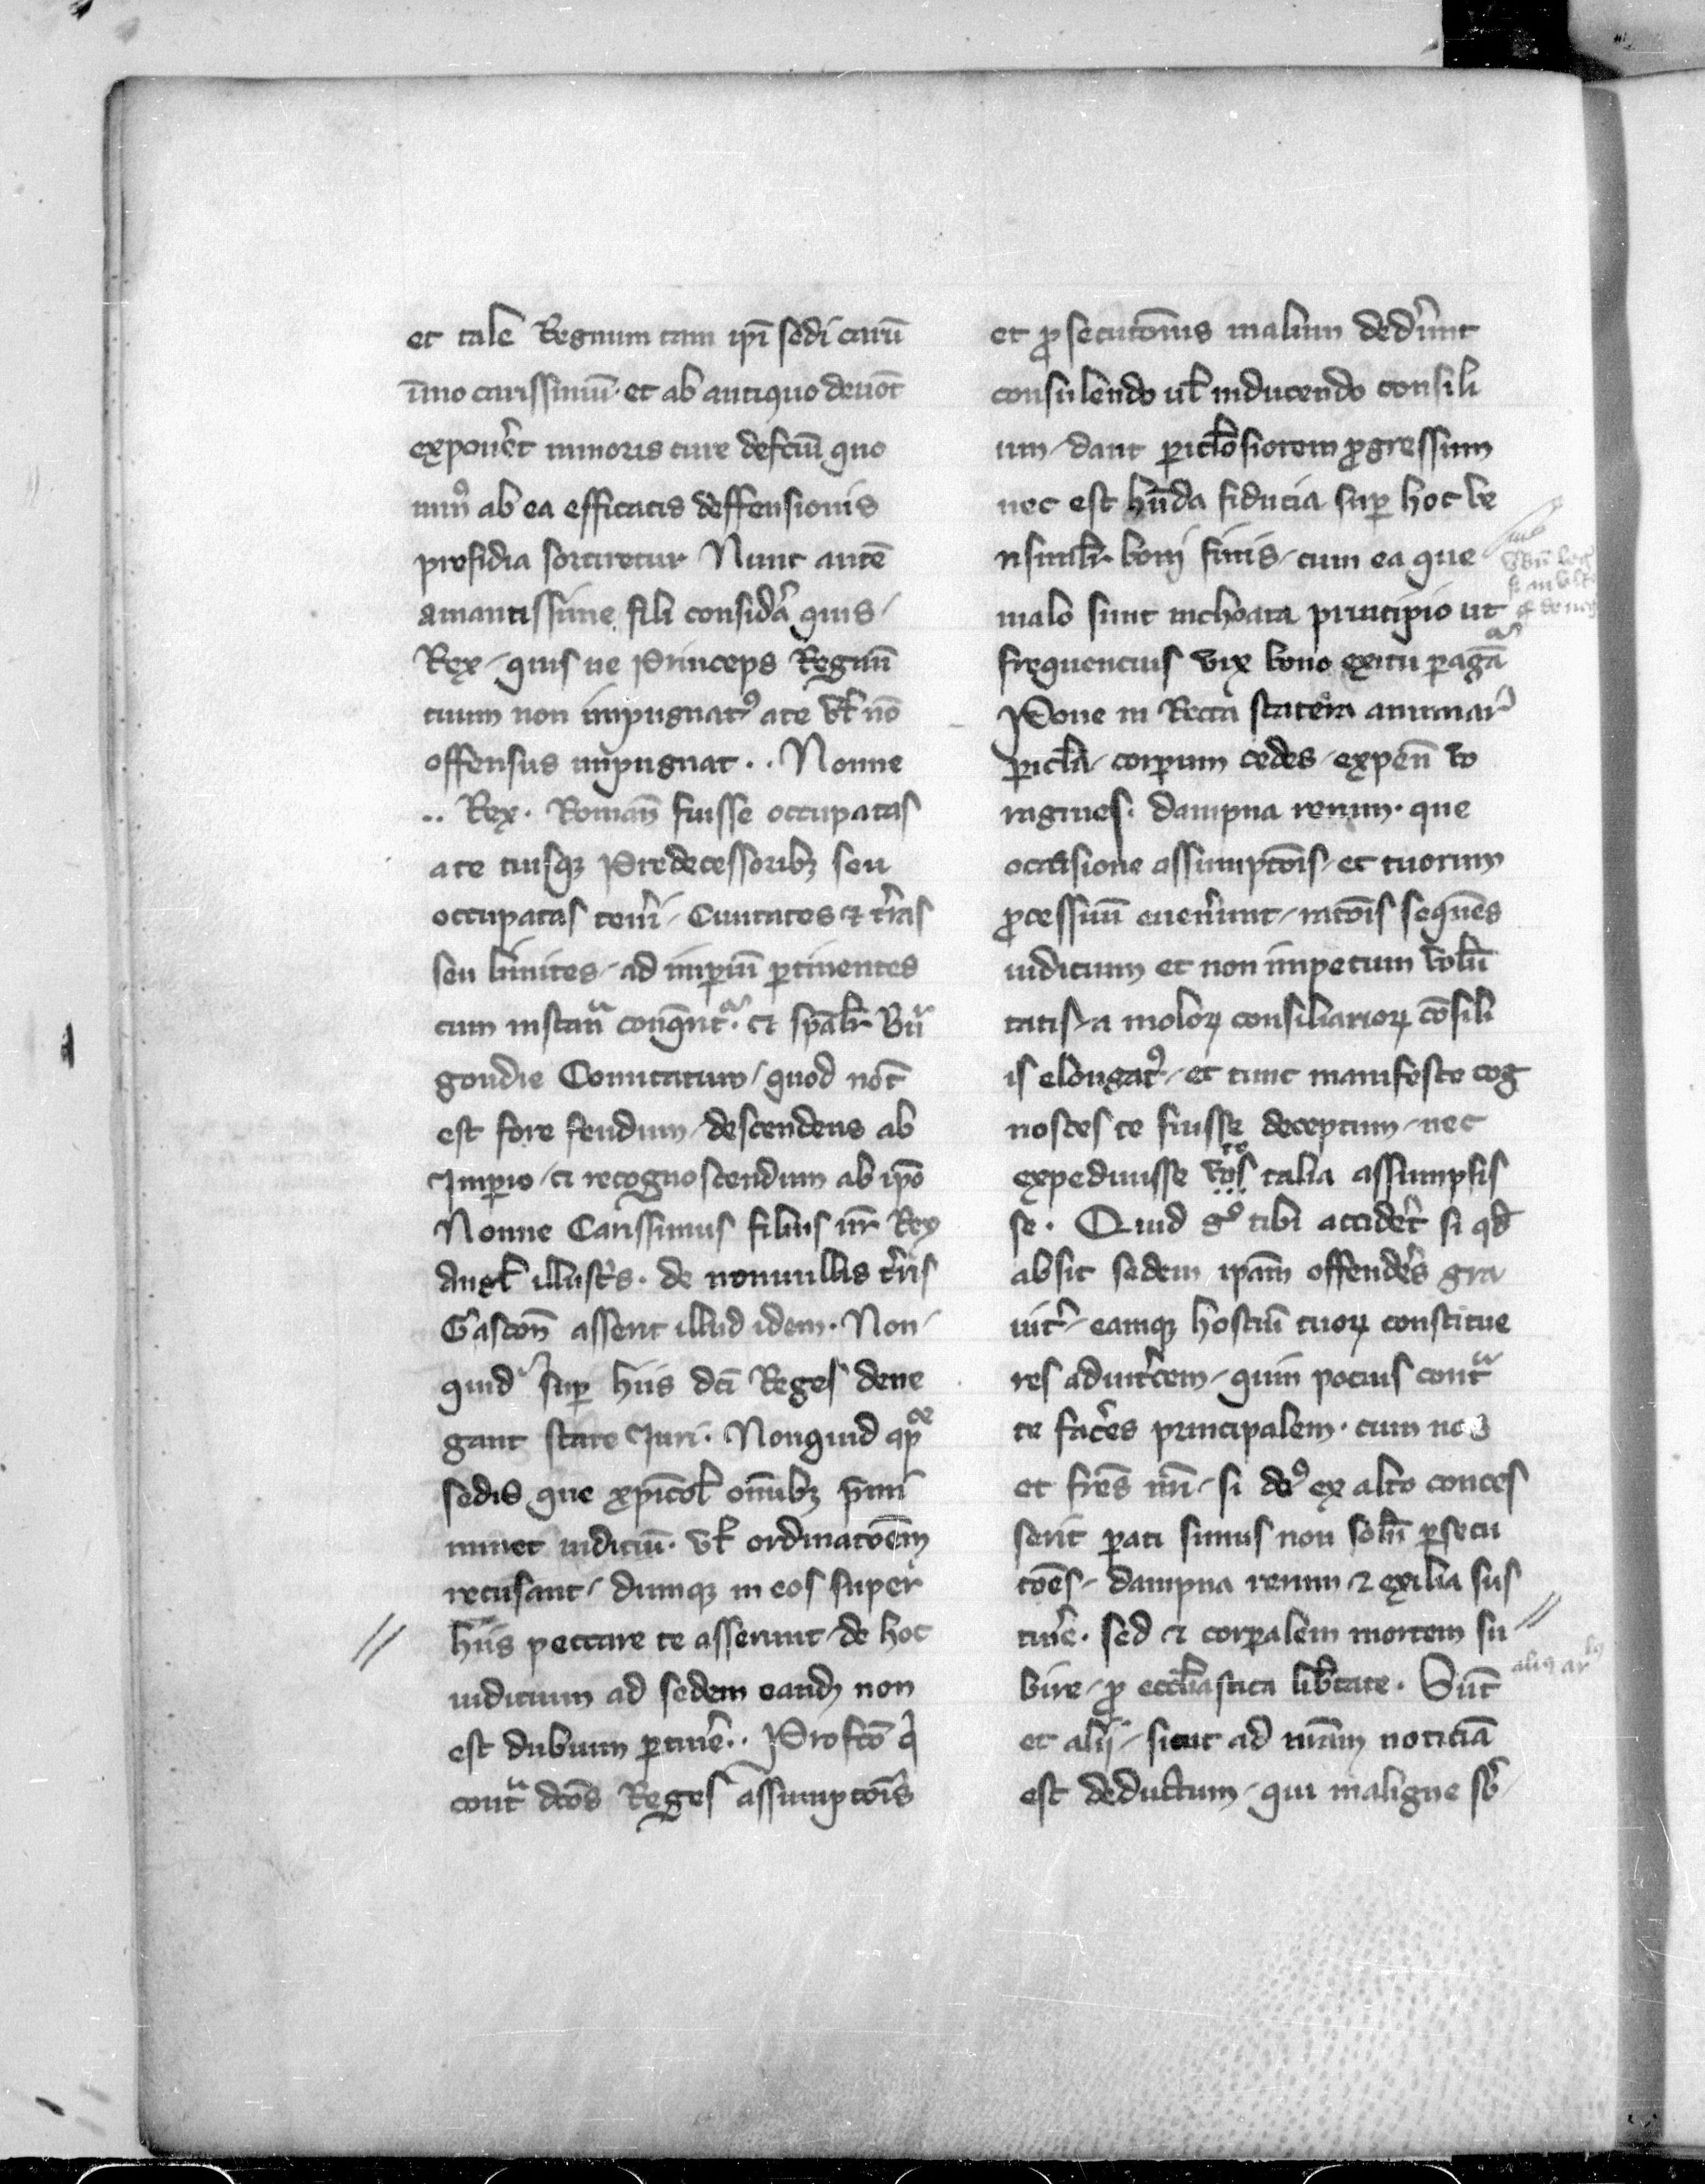 et tale Regnum tam ip̄i sedi carū
ȳmo carissimū· et ab antiquo deuot̄
expon̄et minoris cure defc̄ui quo
min⁹ ab ea efficacis deffensionis
presidia sortiretur Nunc autē
amantissime fili considᷓa quis/
Rex / quis ue Princeps Regnū
tuum non impugnat⁹ a te ul̄ nō
offensus impugnat·. Nonne
.. Rex· Roman̄ fuisse occupatas
a te tuisqꝫ Predecessoribꝫ seu
occupatas ten̄i / Ciuitates ⁊ tr̄as
seu limites / ad imꝑiū ꝑtinentes
cum instan̄ conq̄rit̄· et sp̄alr̄ Bur
gondie Comitatum / quod not̄
est fore feudum / descendens ab
Imꝑio / et recognoscendum ab ip̄o
Nonne Carissimus filius nr̄ Rex
Angl̄ illustris· de nonnullis tr̄is
Gascon̄ asserit illud idem· Non/
quid suꝑ hiis dc̄i Reges dene
gant stare Iuri· Nonquid ap̄ce
sedis que xp̄icol̄ om̄ibꝫ p̄mi
minet iudiciū· ul̄ ordinatōem
recusant / dumqꝫ in eos super
hiis peccare te asserunt / de hoc
iudicium ad sedem eandꝫ non
est dubium ꝑtin̄e·. Profcō q̄
contᷓ dc̄os Reges assumpcōis
et ꝓsecutōnis malum dedᷓunt
consulendo ul̄ inducendo consili
um / dant ꝑicl̄osiorem ꝓgressum
nec est hn̄da fiducia suꝑ hoc ve
risimilr̄ boni finis / cum ea que
malo sunt inchoata principio ut
frequencius vix bono exitu ꝑagan̄
Pone in Recta statera animar̄
ꝑicl̄a / corꝑum cedes / expen̄ vo
ragines· dampna rerum· que
occasione assumptōis / et tuorum
ꝓcessuū euen̄unt / ratōis sequēs
iudicium et non impetum volū
tatis / a molorꝝ consiliariorꝝ cōsili
is elongat⁹ / et tunc manifeste cog
nosces te fuisse deceptum / nec
expediuisse vos te talia assumpsis
se· Quid gͦ tibi accidēt si qd̄
absit sedem ip̄am offendēs gra
uit̄ / eamqꝫ hostiū tuorꝝ constitue
res adiut̄cem / quin pocius contᷓ
te fac̄es principalem· cum nos
et fr̄es nr̄i / si de⁹ ex alto conces
serit ꝑati sumus non solū ꝑsecu
tōes / dampna rerum ⁊ exilia sus
tin̄e· sed ⁊ corꝑalem mortem su
bire / ꝓ eccl̄iastica lib̄tate· Sūt
et alij / sicut ad nr̄am noticiā
est deductum / qui maligne sb̄/